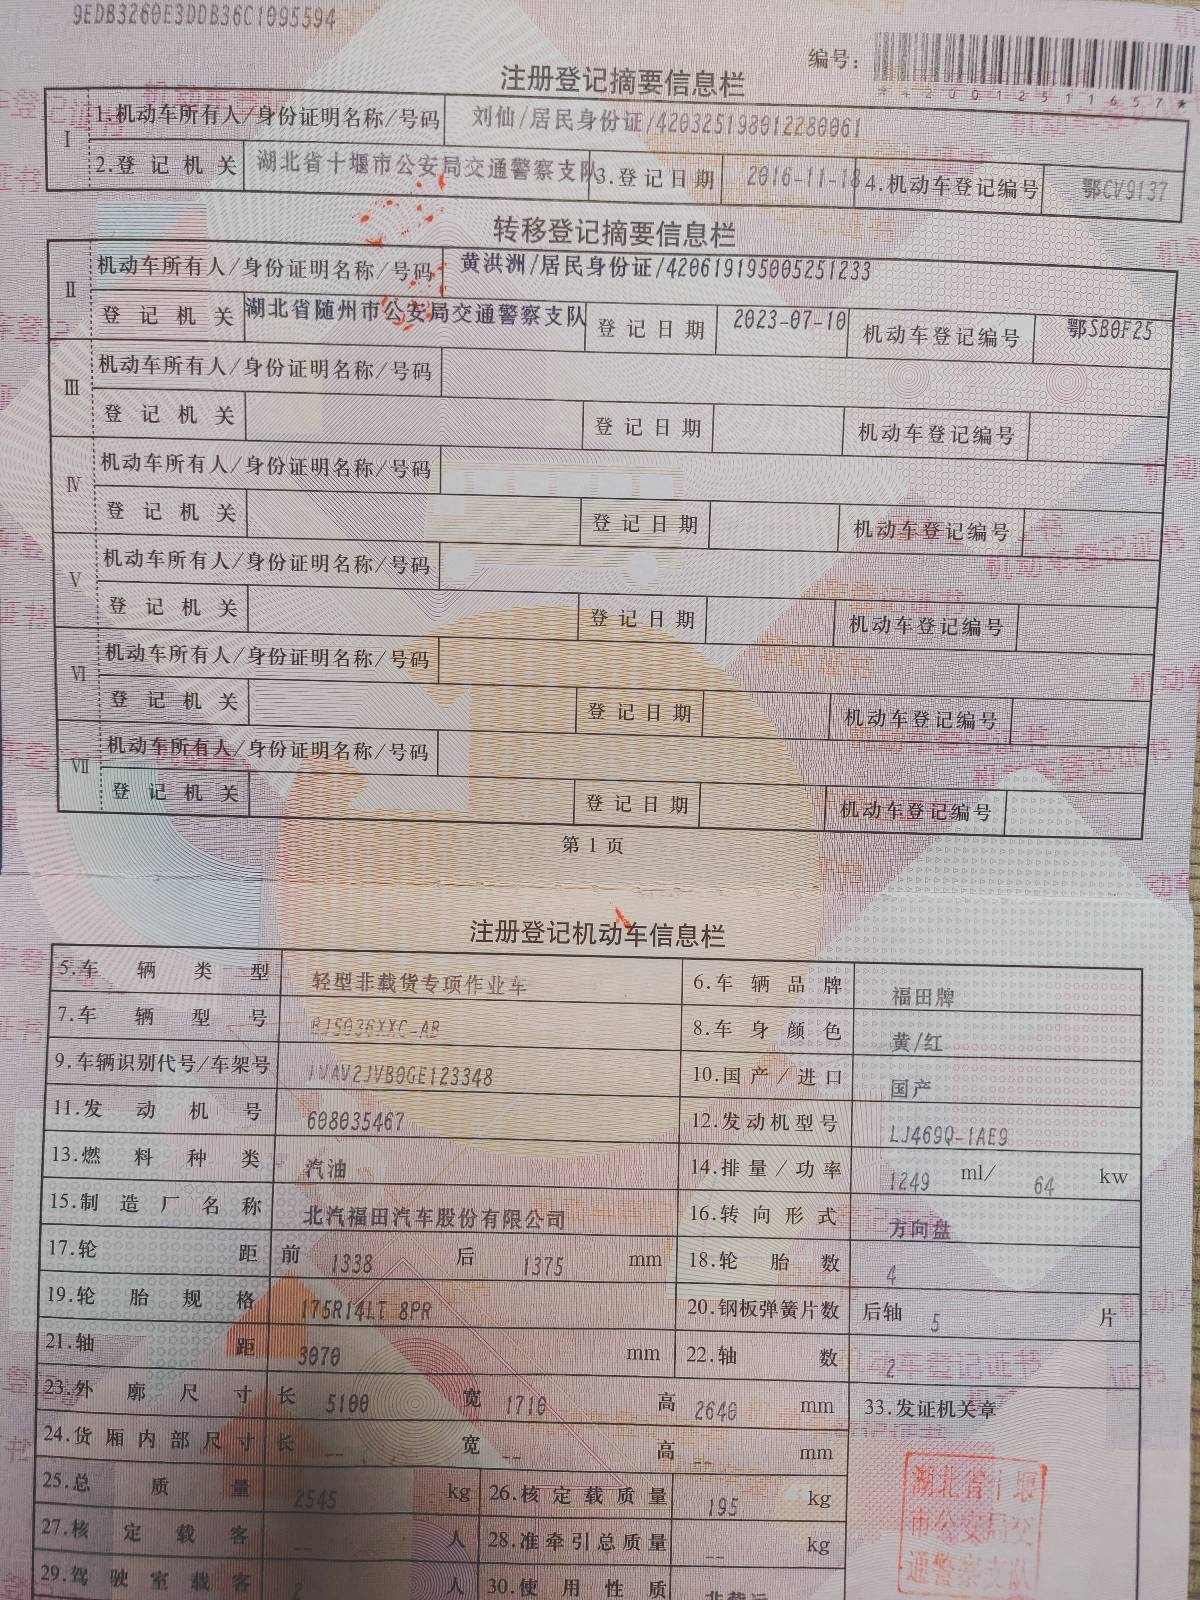 9EDB3260E3DDB36C1095594
编号：
*420012511657*
注册登记摘要信息栏
Ⅰ
1.机动车所有人/身份证明名称/号码 刘仙/居民身份证/420325198012280061
2.登记机关 湖北省十堰市公安局交通警察支队 3.登记日期 2016-11-18 4.机动车登记编号 鄂CV9137
转移登记摘要信息栏
Ⅱ
机动车所有人/身份证明名称/号码 黄洪洲/居民身份证/420619195005251233
登记机关 湖北省随州市公安局交通警察支队 登记日期 2023-07-10 机动车登记编号 鄂SB0F25
Ⅲ
机动车所有人/身份证明名称/号码
登记机关 登记日期 机动车登记编号
Ⅳ
机动车所有人/身份证明名称/号码
登记机关 登记日期 机动车登记编号
Ⅴ
机动车所有人/身份证明名称/号码
登记机关 登记日期 机动车登记编号
Ⅵ
机动车所有人/身份证明名称/号码
登记机关 登记日期 机动车登记编号
Ⅶ
机动车所有人/身份证明名称/号码
登记机关 登记日期 机动车登记编号
第1页
注册登记机动车信息栏
5.车辆类型 轻型非载货专项作业车 6.车辆品牌 福田牌
7.车辆型号 BJ5036XXC-AB 8.车身颜色 黄/红
9.车辆识别代号/车架号 LVAV2JVB0GE123348 10.国产/进口 国产
11.发动机号 608035467 12.发动机型号 LJ469Q-1AE9
13.燃料种类 汽油 14.排量/功率 1249 ml/ 64 kw
15.制造厂名称 北汽福田汽车股份有限公司 16.转向形式 方向盘
17.轮距 前 1338 后 1375 mm 18.轮胎数 4
19.轮胎规格 175R14LT 8PR 20.钢板弹簧片数 后轴 5 片
21.轴距 3070 mm 22.轴数 2
23.外廓尺寸 长 5100 宽 1710 高 2640 mm 33.发证机关章
24.货厢内部尺寸 长 -- 宽 -- 高 -- mm
25.总质量 2545 kg 26.核定载质量 195 kg
27.核定载客 -- 人 28.准牵引总质量 -- kg
29.驾驶室载客 2 人 30.使用性质 非载运
湖北省十堰
市公安局交
通警察支队